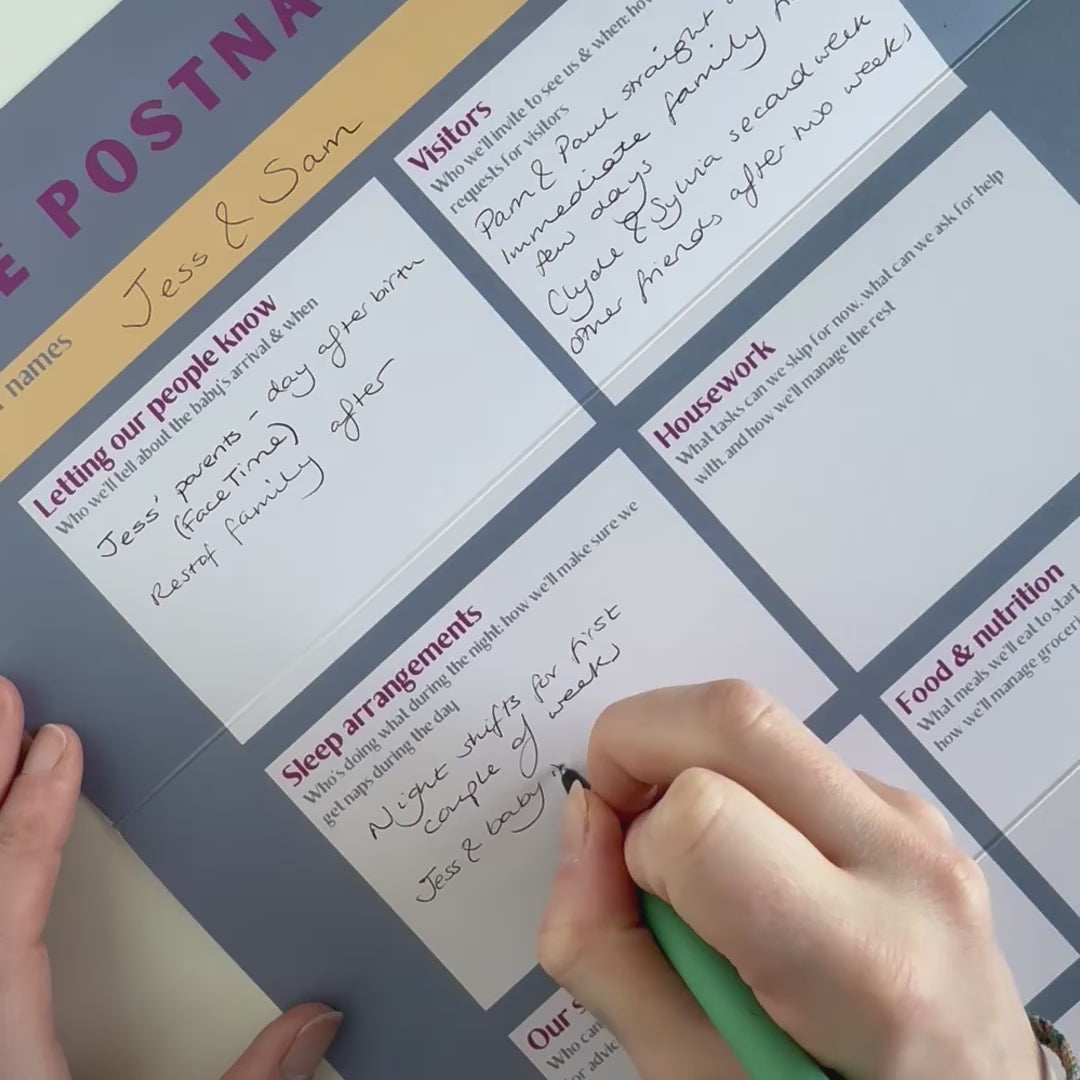 E POSTNA
names
Jess & Sam
Letting our people know
Who we'll tell about the baby's arrival & when
Jess' parents - day after birth
(FaceTime)
Rest of family after
Visitors
Who we'll invite to see us & when: how
requests for visitors
Pam & Paul straight
Immediate family
few days
Clyde & Sylvia second week
other friends after two weeks
Sleep arrangements
Who's doing what during the night; how we'll make sure we
get naps during the day
Night shifts for first
couple of weeks
Jess & baby
Housework
What tasks can we skip for now, what can we ask for help
with, and how we'll manage the rest
Food & nutrition
What meals we'll eat to start
how we'll manage
Our
Who can
for advic